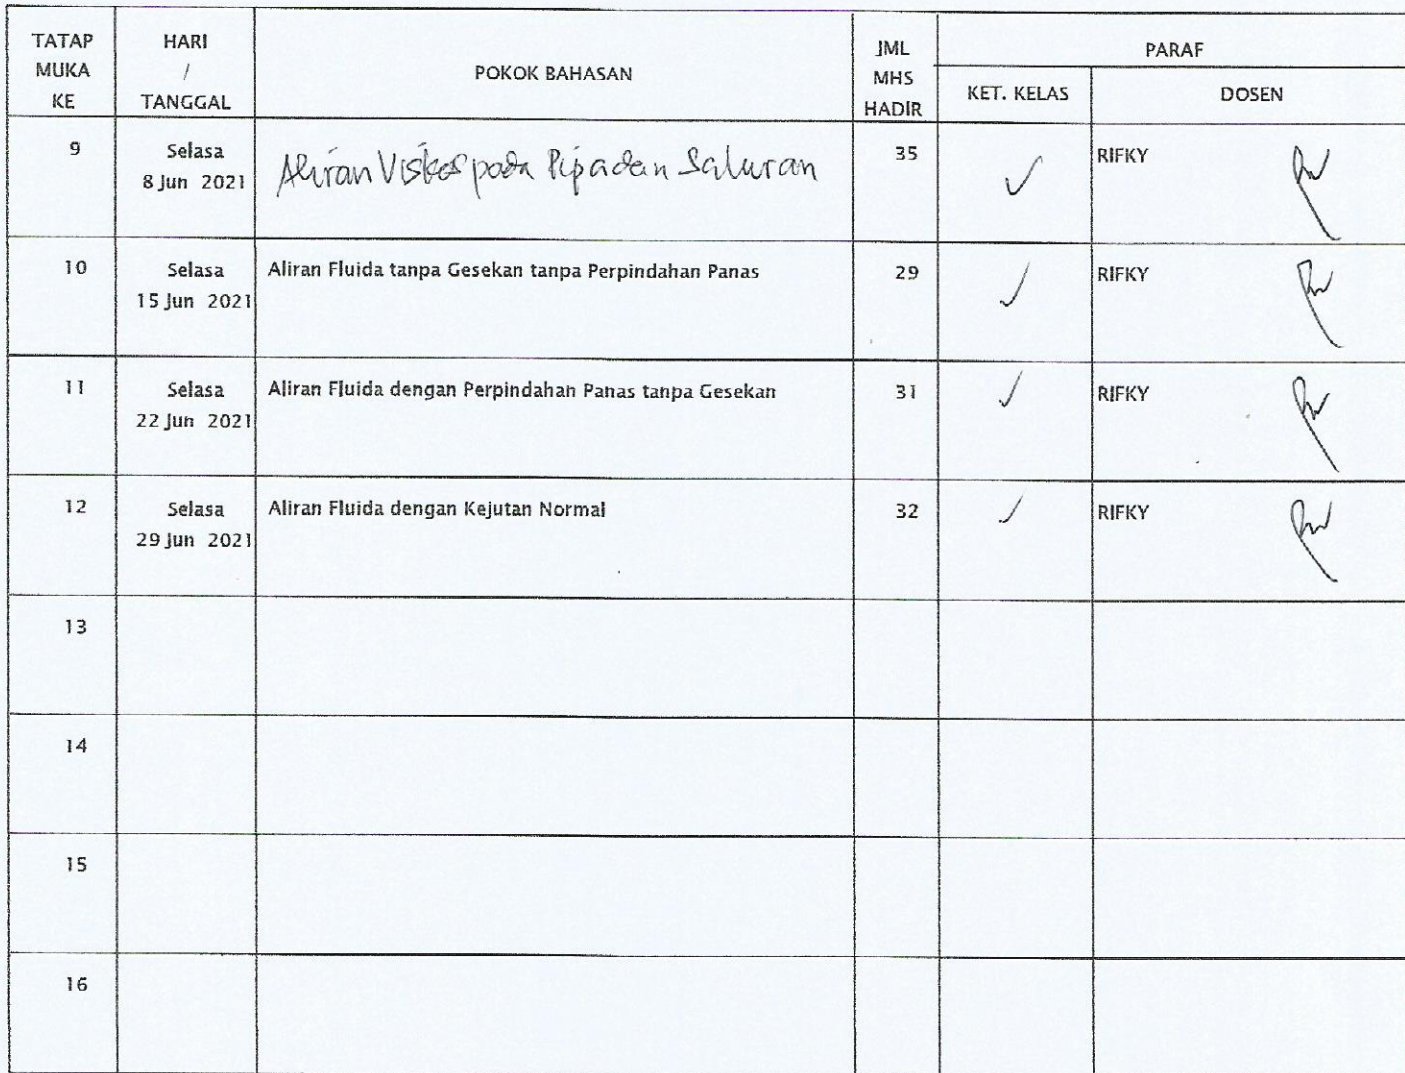 TATAP MUKA KE
HARI / TANGGAL
POKOK BAHASAN
JML MHS HADIR
PARAF
KET. KELAS
DOSEN
9
Selasa
8 Jun 2021
Aliran Viskos pada Pipa dan Saluran
35
RIFKY
10
Selasa
15 Jun 2021
Aliran Fluida tanpa Gesekan tanpa Perpindahan Panas
29
RIFKY
11
Selasa
22 Jun 2021
Aliran Fluida dengan Perpindahan Panas tanpa Gesekan
31
RIFKY
12
Selasa
29 Jun 2021
Aliran Fluida dengan Kejutan Normal
32
RIFKY
13
14
15
16